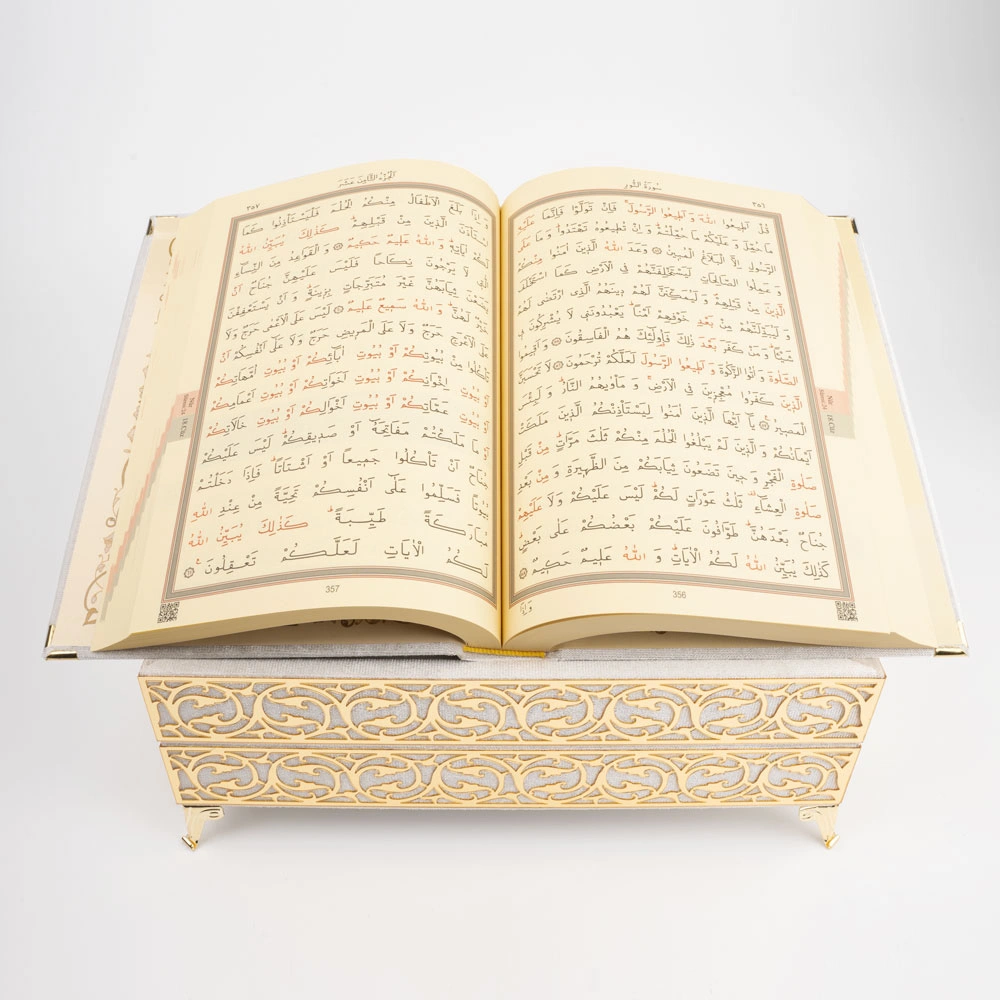 سُورَةُ النُّورِ
٣٥٦
قُلْ اَطٖيعُوا اللّٰهَ وَ اَطٖيعُوا الرَّسُولَ فَاِنْ تَوَلَّوْا فَاِنَّمَا عَلَيْهِ
مَا حُمِّلَ وَ عَلَيْكُمْ مَا حُمِّلْتُمْ وَ اِنْ تُطٖيعُوهُ تَهْتَدُوا وَ مَا عَلَى
الرَّسُولِ اِلَّا الْبَلَاغُ الْمُبٖينُ وَعَدَ اللّٰهُ الَّذٖينَ اٰمَنُوا مِنْكُمْ
وَ عَمِلُوا الصَّالِحَاتِ لَيَسْتَخْلِفَنَّهُمْ فِي الْاَرْضِ كَمَا اسْتَخْلَفَ
الَّذٖينَ مِنْ قَبْلِهِمْ وَ لَيُمَكِّنَنَّ لَهُمْ دٖينَهُمُ الَّذِي ارْتَضٰى لَهُمْ
وَ لَيُبَدِّلَنَّهُمْ مِنْ بَعْدِ خَوْفِهِمْ اَمْنًا يَعْبُدُونَنٖي لَا يُشْرِكُونَ بٖي
شَيْئًا وَ مَنْ كَفَرَ بَعْدَ ذٰلِكَ فَاُولٰٓئِكَ هُمُ الْفَاسِقُونَ وَ اَقٖيمُوا
الصَّلٰوةَ وَ اٰتُوا الزَّكٰوةَ وَ اَطٖيعُوا الرَّسُولَ لَعَلَّكُمْ تُرْحَمُونَ لَا تَحْسَبَنَّ
الَّذٖينَ كَفَرُوا مُعْجِزٖينَ فِي الْاَرْضِ وَ مَاْوٰيهُمُ النَّارُ وَ لَبِئْسَ
الْمَصٖيرُ يَٓا اَيُّهَا الَّذٖينَ اٰمَنُوا لِيَسْتَاْذِنْكُمُ الَّذٖينَ مَلَكَتْ
اَيْمَانُكُمْ وَ الَّذٖينَ لَمْ يَبْلُغُوا الْحُلُمَ مِنْكُمْ ثَلٰثَ مَرَّاتٍ مِنْ قَبْلِ
صَلٰوةِ الْفَجْرِ وَ حٖينَ تَضَعُونَ ثِيَابَكُمْ مِنَ الظَّهٖيرَةِ وَ مِنْ بَعْدِ
صَلٰوةِ الْعِشَٓاءِ ثَلٰثُ عَوْرَاتٍ لَكُمْ لَيْسَ عَلَيْكُمْ وَلَا عَلَيْهِمْ
جُنَاحٌ بَعْدَهُنَّ طَوَّافُونَ عَلَيْكُمْ بَعْضُكُمْ عَلٰى بَعْضٍ
كَذٰلِكَ يُبَيِّنُ اللّٰهُ لَكُمُ الْاٰيَاتِ وَ اللّٰهُ عَلٖيمٌ حَكٖيمٌ
356
وَ اِذَا
اَلْجُزْءُ الثَّامِنَ عَشَرَ
٣٥٧
وَ اِذَا بَلَغَ الْاَطْفَالُ مِنْكُمُ الْحُلُمَ فَلْيَسْتَاْذِنُوا كَمَا
اسْتَاْذَنَ الَّذٖينَ مِنْ قَبْلِهِمْ كَذٰلِكَ يُبَيِّنُ اللّٰهُ
لَكُمْ اٰيَاتِهٖ وَ اللّٰهُ عَلٖيمٌ حَكٖيمٌ وَ الْقَوَاعِدُ مِنَ النِّسَٓاءِ
الّٰتٖي لَا يَرْجُونَ نِكَاحًا فَلَيْسَ عَلَيْهِنَّ جُنَاحٌ اَنْ
يَضَعْنَ ثِيَابَهُنَّ غَيْرَ مُتَبَرِّجَاتٍ بِزٖينَةٍ وَ اَنْ يَسْتَعْفِفْنَ
خَيْرٌ لَهُنَّ وَ اللّٰهُ سَمٖيعٌ عَلٖيمٌ لَيْسَ عَلَى الْاَعْمٰى حَرَجٌ وَلَا
عَلَى الْاَعْرَجِ حَرَجٌ وَلَا عَلَى الْمَرٖيضِ حَرَجٌ وَلَا عَلٰٓى اَنْفُسِكُمْ اَنْ
تَاْكُلُوا مِنْ بُيُوتِكُمْ اَوْ بُيُوتِ اٰبَٓائِكُمْ اَوْ بُيُوتِ اُمَّهَاتِكُمْ
اَوْ بُيُوتِ اِخْوَانِكُمْ اَوْ بُيُوتِ اَخَوَاتِكُمْ اَوْ بُيُوتِ اَعْمَامِكُمْ
اَوْ بُيُوتِ عَمَّاتِكُمْ اَوْ بُيُوتِ اَخْوَالِكُمْ اَوْ بُيُوتِ خَالَاتِكُمْ
اَوْ مَا مَلَكْتُمْ مَفَاتِحَهُٓ اَوْ صَدٖيقِكُمْ لَيْسَ عَلَيْكُمْ
جُنَاحٌ اَنْ تَاْكُلُوا جَمٖيعًا اَوْ اَشْتَاتًا فَاِذَا دَخَلْتُمْ
بُيُوتًا فَسَلِّمُوا عَلٰٓى اَنْفُسِكُمْ تَحِيَّةً مِنْ عِنْدِ اللّٰهِ
مُبَارَكَةً طَيِّبَةً كَذٰلِكَ يُبَيِّنُ اللّٰهُ
لَكُمُ الْاٰيَاتِ لَعَلَّكُمْ تَعْقِلُونَ
357